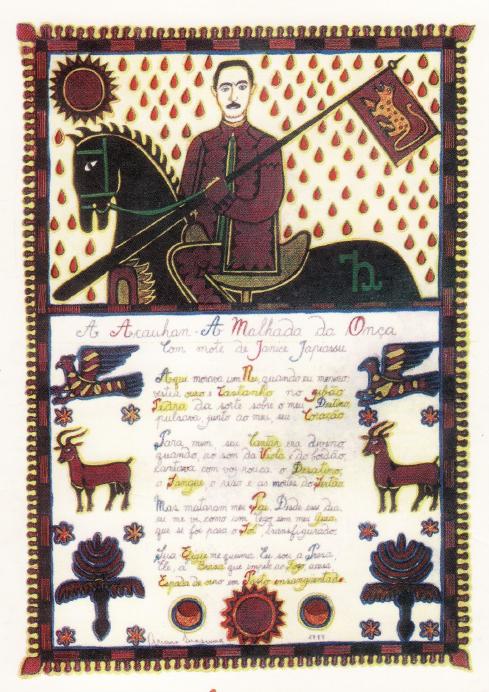 A Acauhan - A Malhada da Onça
Com mote de Janice Japiassu
Aqui morava um Rei, quando eu menino:
vestia ouro e Castanho no gibão.
Pedra da sorte sobre o meu Destino,
pulsava, junto ao meu, seu Coração.
Para mim, seu Cantar era divino,
quando, ao som da Viola e do bordão,
cantava com voz rouca o Desatino,
o Sangue, o riso e as mortes do Sertão.
Mas mataram meu Pai. Desde esse dia,
eu me vi como um Cego sem meu Guia,
que se foi para o Sol, transfigurado.
Sua Efígie me queima. Eu sou a Presa,
Ele, a Brasa que impele ao Fogo, acesa,
Espada de ouro em Pasto ensanguentado.
Ariano Suassuna